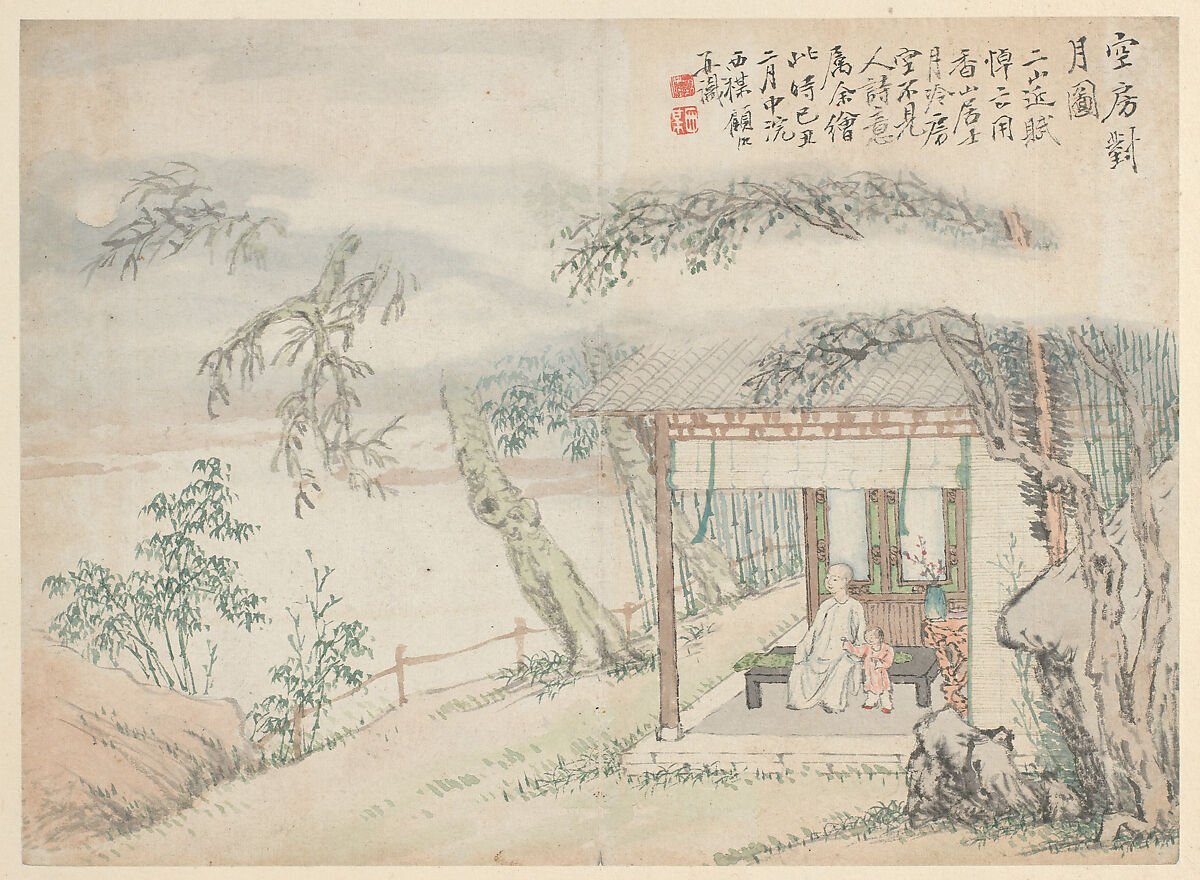 空房對
月圖
二山近賦
悼亡用
香山居士
月冷房
空不見
人詩意
屬余繪
此時己丑
二月中浣
西楳顧沄
并識